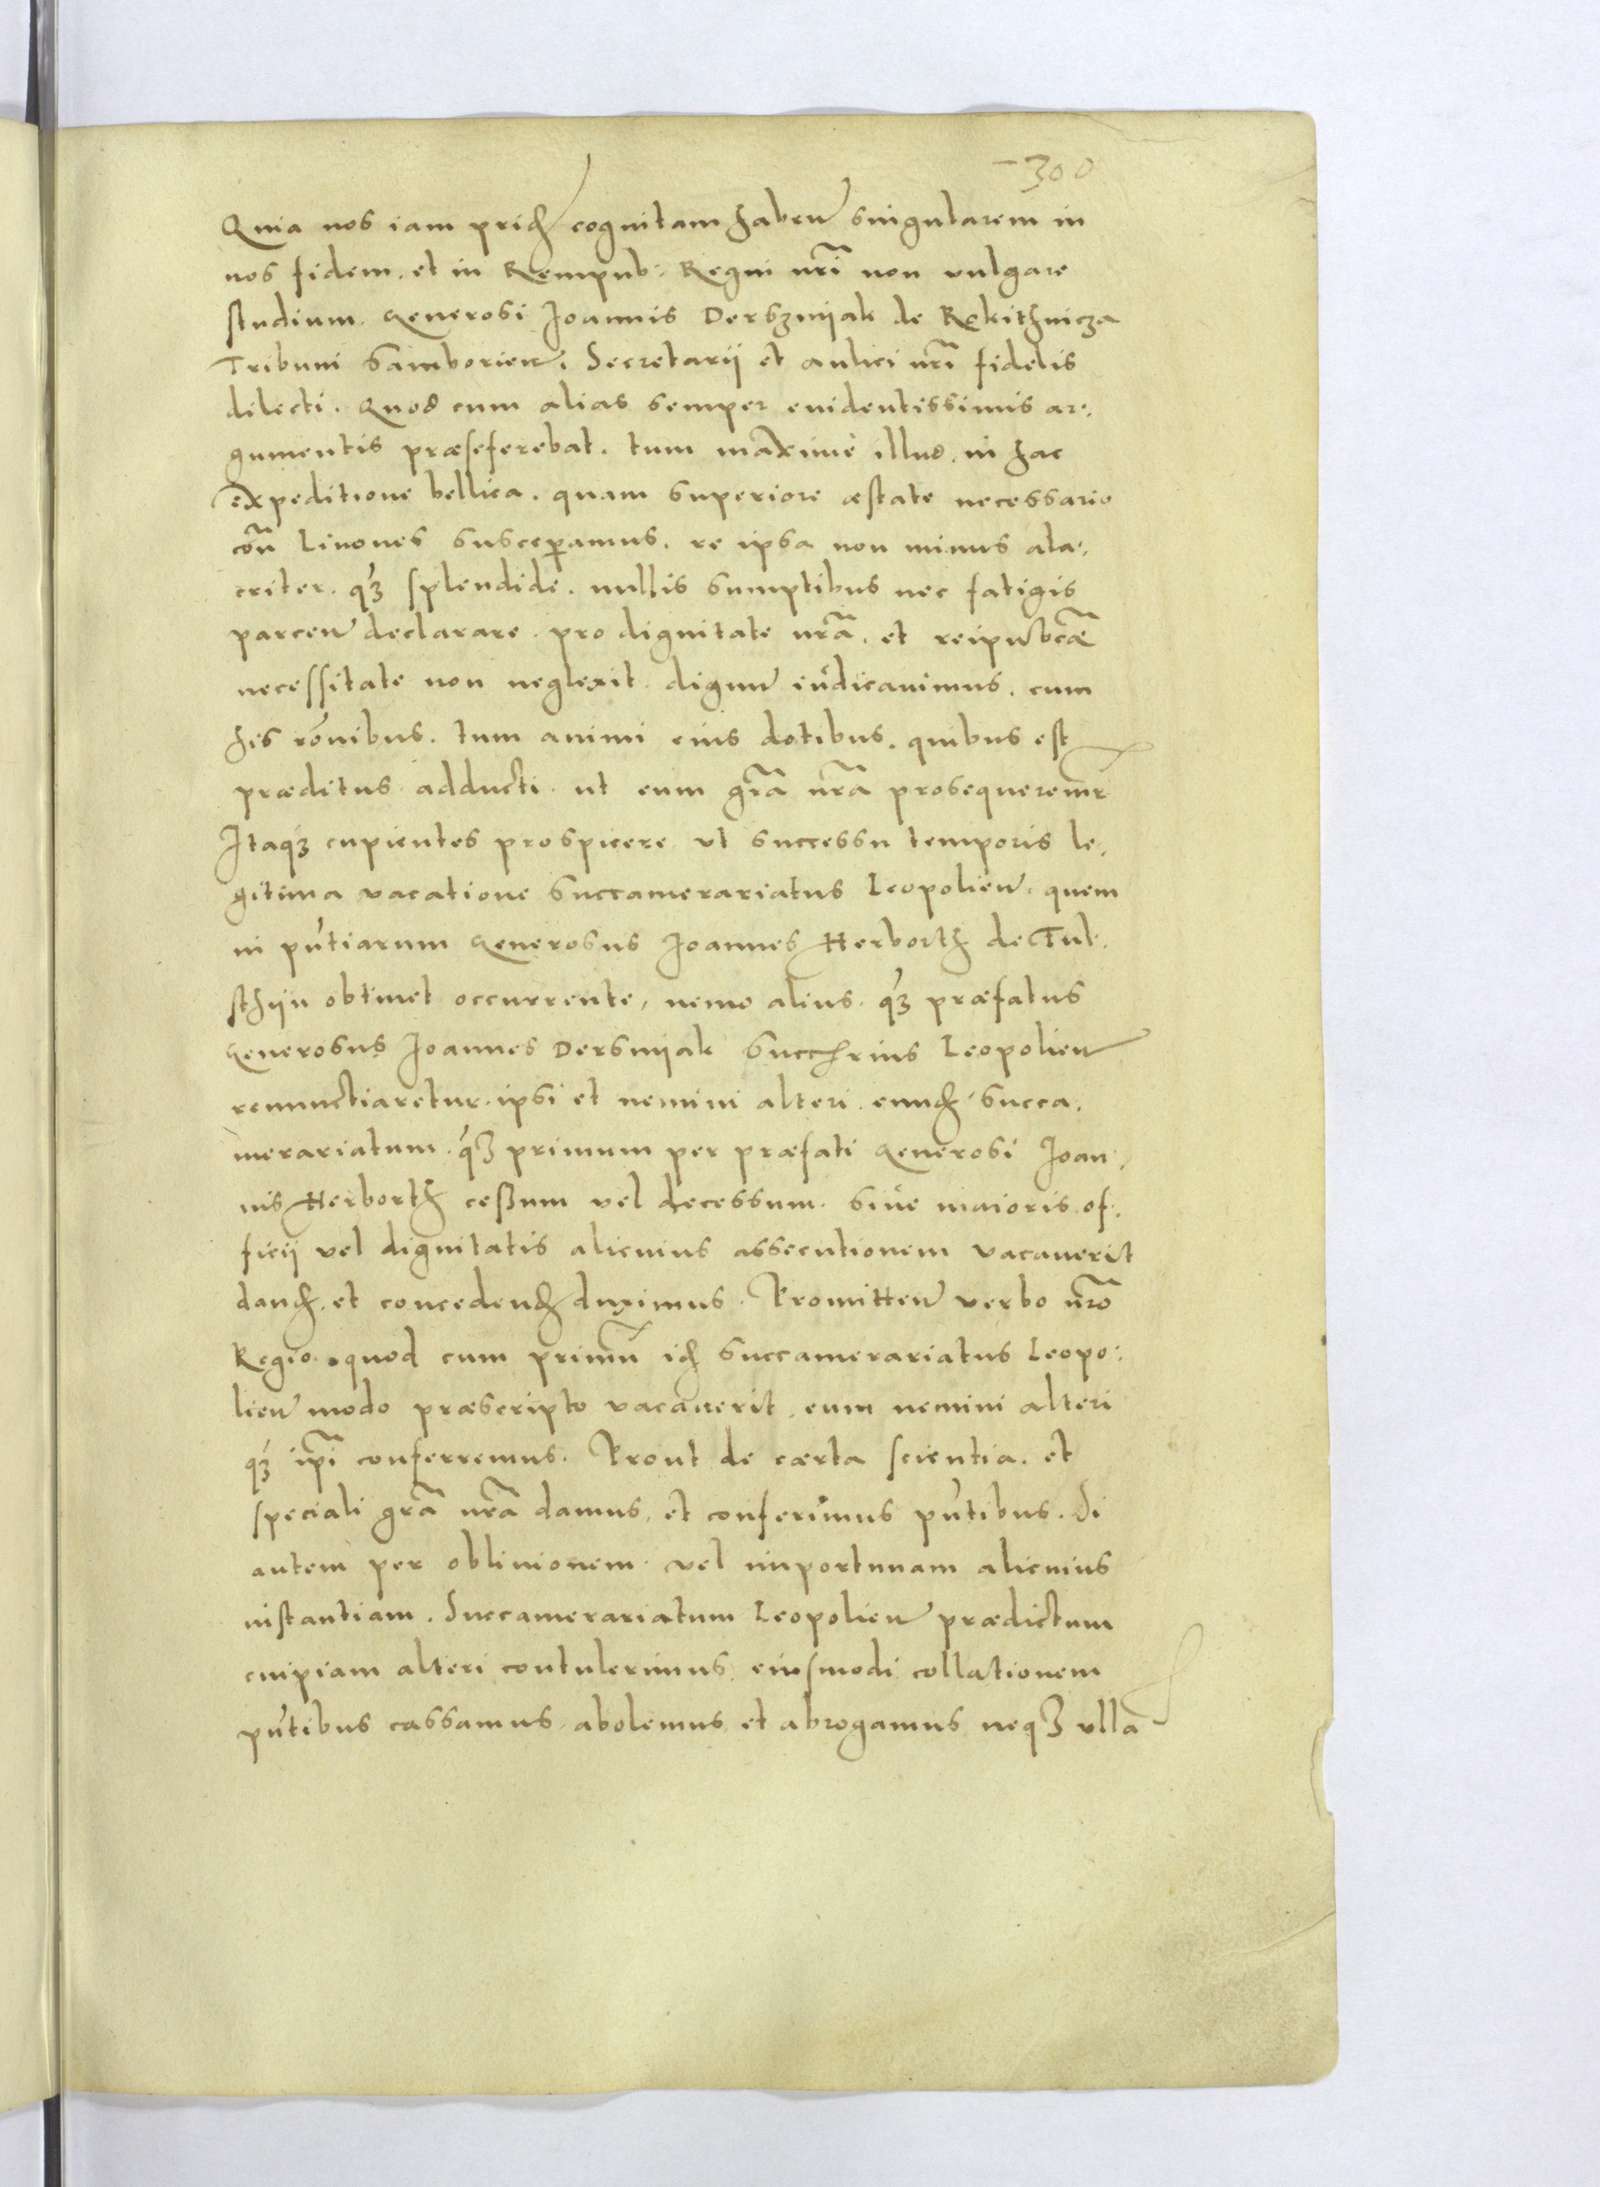 300
Quia nos iam prid cognitam haben singularem in
nos fidem. et in Rempub: Regni nrī non vulgare
studium. Generosi Joannis Derszniak de Rokithnicza
Tribuni Samborien. Secretarii et aulici nrī fidelis
dilecti. Quod cum alias semper euidentissimis ar.
gumentis præseferebat. tum maximè illud. in hac
expeditione bellica. quam superiore æstate necessario
con̄ Liuones susceꝑamus. re ipsa non minus ala.
criter. q̃ȝ splendidè. nullis sumptibus nec fatigis
parcen declarare. pro dignitate nrā. et reipubcǣ
necessitate non neglexit. dignu iudicauimus. cum
his rōnibus. tum animi eius dotibus. quibus est
præditus adducti. ut eum grā nrā prosequeremr
Itaqȝ cupientes prospicere vt successu temporis le.
gitima vacatione Succamerariatus Leopolien. quem
in pn̄tiarum Generosus Joannes Herborth de Ful.
sthijn obtinet occurrente, nemo alius. q̃ȝ præfatus
Generosus Joannes Dersniak Succrius Leopolien
renunctiaretur. ipsi et nemini alteri. eund Succa.
merariatum. q̃ȝ primum per præfati Generosi Joan.
nis Herborth cessum vel decessum. siue maioris of.
ficii vel dignitatis alicuius assecutionem vacauerit
dand. et concedend duximus. Promitten verbo nrō
Regio. quod cum primū id Succamerariatus Leopo.
lien modo præscripto vacauerit. eum nemini alteri
q̃ȝ ipī conferremus. Prout de cærta scientia. et
speciali grā nrā damus, et conferimus pn̄tibus. Si
autem per obliuionem. vel importunam alicuius
instantiam. Succamerariatum Leopolien prædictum
cuipiam alteri contulerimus eiusmodi collationem
pn̄tibus cassamus, abolemus et abrogamus neqȝ vlla